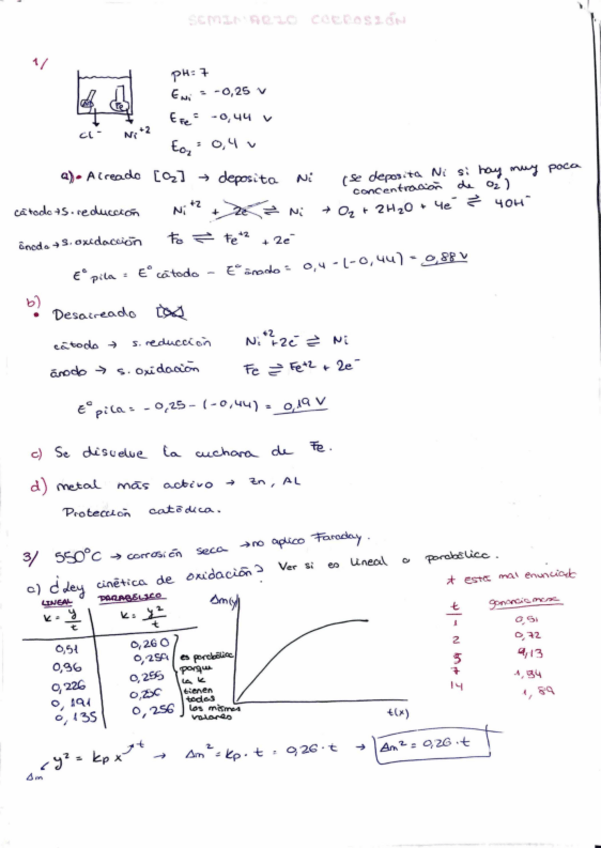 SEMINARIO CORROSIÓN
1/
Ni
Fe
Cl⁻ Ni⁺²
pH=7
E Ni = -0,25 V
E Fe = -0,44 V
E O₂ = 0,4 V
a) • Aireado [O₂] → deposita Ni (se deposita Ni si hay muy poca concentración de O₂)
cátodo → s. reducción Ni⁺² + 2e⁻ ⇌ Ni → O₂ + 2H₂O + 4e⁻ ⇌ 4OH⁻
ánodo → s. oxidacción Fe ⇌ Fe⁺² + 2e⁻
E° pila = E° cátodo - E° ánodo = 0,4 - (-0,44) = 0,88 V
b)
• Desaireado
cátodo → s. reducción Ni⁺² + 2e⁻ ⇌ Ni
ánodo → s. oxidación Fe ⇌ Fe⁺² + 2e⁻
E° pila = -0,25 - (-0,44) = 0,19 V
c) Se disuelve la cuchara de Fe.
d) metal más activo → Zn, AL
Protección catódica.
3/ 550°C → corrosión seca → no aplico Faraday.
a) ¿Ley cinética de oxidación? Ver si es lineal o parabólica.
LINEAL PARABÓLICO
k = y/t k = y²/t
0,51 0,260
0,36 0,259
0,226 0,255
0,191 0,256
0,135 0,256
es parabólica
porque
la k
tienen
todas
los mismos
valores
Δm(y)
t(x)
* está mal enunciado
t ganancia masa
1 0,51
2 0,72
5 1,13
7 1,34
14 1,89
Δm y² = kp x t → Δm² = kp · t = 0,26 · t → Δm² = 0,26 · t